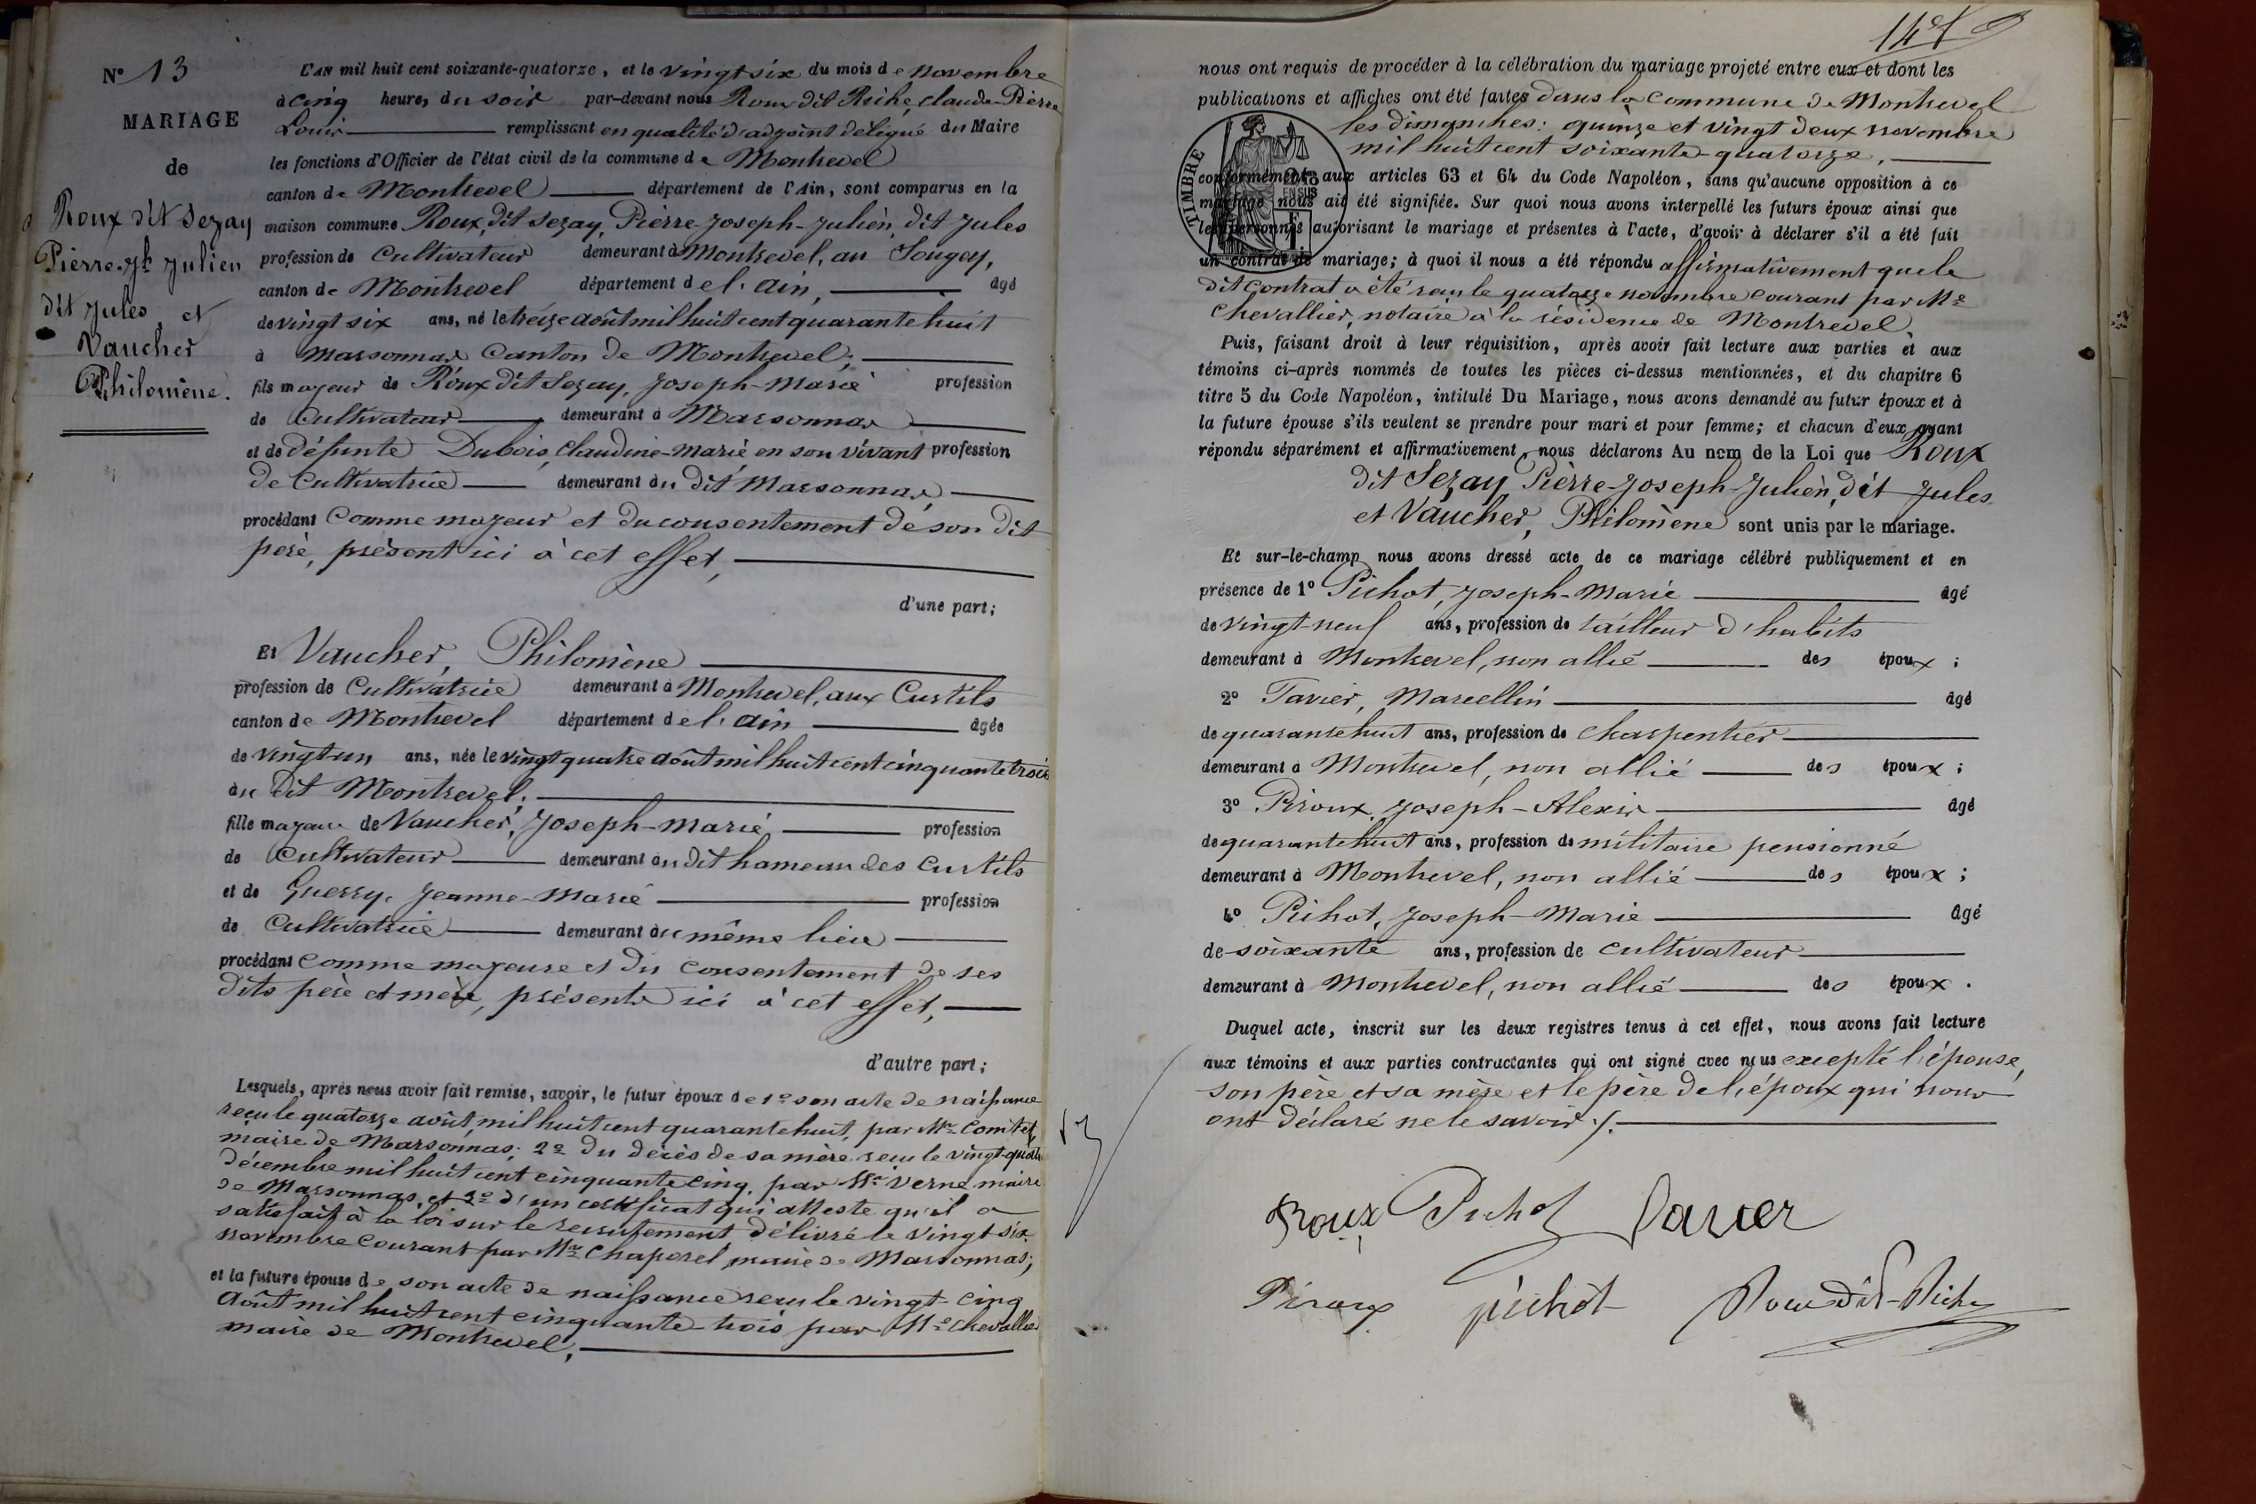 N° 13
MARIAGE
de
Roux dit Sezay
Pierre-Jh Julien
dit Jules et
Vaucher
Philomène.
L'AN mil huit cent soixante-quatorze, et le vingt six du mois de novembre
à cinq heures du soir par-devant nous Roux dit Riche, Claude-Pierre
Louis remplissant en qualité d'adjoint délégué du Maire
les fonctions d'Officier de l'état civil de la commune de Montrevel
canton de Montrevel département de l'Ain, sont comparus en la
maison commune Roux, dit Sezay, Pierre-Joseph-Julien, dit Jules
profession de Cultivateur demeurant à Montrevel, au Sougey,
canton de Montrevel département de l'ain, âgé
de vingt six ans, né le treize août mil huit cent quarante huit
à Marsonnas Canton de Montrevel,
fils majeur de Roux dit Sezay, Joseph-Marie profession
de Cultivateur demeurant à Marsonnas
et de défunte Dubois, Claudine-Marie, en son vivant profession
de Cultivatrice demeurant au dit Marsonnas,
procédant comme majeur et du consentement de son dit
père, présent ici à cet effet,
d'une part;
Et Vaucher, Philomène
profession de Cultivatrice demeurant à Montrevel, aux Curtils
canton de Montrevel département de l'ain âgée
de vingt-un ans, née le vingt quatre août mil huit cent cinquante trois
au dit Montrevel,
fille majeure de Vaucher, Joseph-Marie, profession
de Cultivateur demeurant au dit hameau des Curtils
et de Guerry, Jeanne-Marie profession
de Cultivatrice demeurant au même lieu
procédant comme majeure et du consentement de ses
dits père et mère, présents ici à cet effet,
d'autre part;
Lesquels, après nous avoir fait remise, savoir, le futur époux de 1° son acte de naissance
reçu le quatorze août mil huit cent quarante huit, par Mr Comtet,
maire de Marsonnas; 2° du décès de sa mère reçu le vingt-quatre
décembre mil huit cent cinquante cinq, par Mr Verne maire
de Marsonnas, et 3° d'un certificat qui atteste qu'il a
satisfait à la loi sur le recrutement délivré le vingt-six
novembre courant par Mr Chaperel maire de Marsonnas;
et la future épouse de son acte de naissance reçu le vingt-cinq
août mil huit cent cinquante-trois par Mr Chevallier
maire de Montrevel,
nous ont requis de procéder à la célébration du mariage projeté entre eux et dont les
publications et affiches ont été faites dans la Commune de Montrevel
les dimanches: quinze et vingt deux novembre
mil huit cent soixante-quatorze,
TIMBRE
conformément aux articles 63 et 64 du Code Napoléon, sans qu'aucune opposition à ce
EN SUS
mariage nous ait été signifiée. Sur quoi nous avons interpellé les futurs époux ainsi que
les personnes autorisant le mariage et présentes à l'acte, d'avoir à déclarer s'il a été fait
un contrat de mariage; à quoi il nous a été répondu affirmativement que le
dit contrat a été reçu le quatorze novembre courant par Me
Chevallier, notaire à la résidence de Montrevel.
Puis, faisant droit à leur réquisition, après avoir fait lecture aux parties et aux
témoins ci-après nommés de toutes les pièces ci-dessus mentionnées, et du chapitre 6
titre 5 du Code Napoléon, intitulé Du Mariage, nous avons demandé au futur époux et à
la future épouse s'ils veulent se prendre pour mari et pour femme; et chacun d'eux ayant
répondu séparément et affirmativement, nous déclarons Au nom de la Loi que Roux
dit Sezay Pierre-Joseph-Julien, dit Jules
et Vaucher, Philomène sont unis par le mariage.
Et sur-le-champ nous avons dressé acte de ce mariage célébré publiquement et en
présence de 1° Pichot, Joseph-Marie âgé
de vingt-neuf ans, profession de tailleur d'habits
demeurant à Montrevel, non allié des époux;
2° Tavier, Marcellin âgé
de quarante huit ans, profession de charpentier
demeurant à Montrevel, non allié des époux;
3° Piroux, Joseph-Alexis âgé
de quarante huit ans, profession de militaire pensionné
demeurant à Montrevel, non allié des époux;
4° Pichot, Joseph-Marie âgé
de soixante ans, profession de cultivateur
demeurant à Montrevel, non allié des époux.
Duquel acte, inscrit sur les deux registres tenus à cet effet, nous avons fait lecture
aux témoins et aux parties contractantes qui ont signé avec nous excepté l'épouse,
son père et sa mère et le père de l'époux qui nous
ont déclaré ne le savoir ./.
Roux Pichot Tavier
Piroux pichot Roux dit-Riche